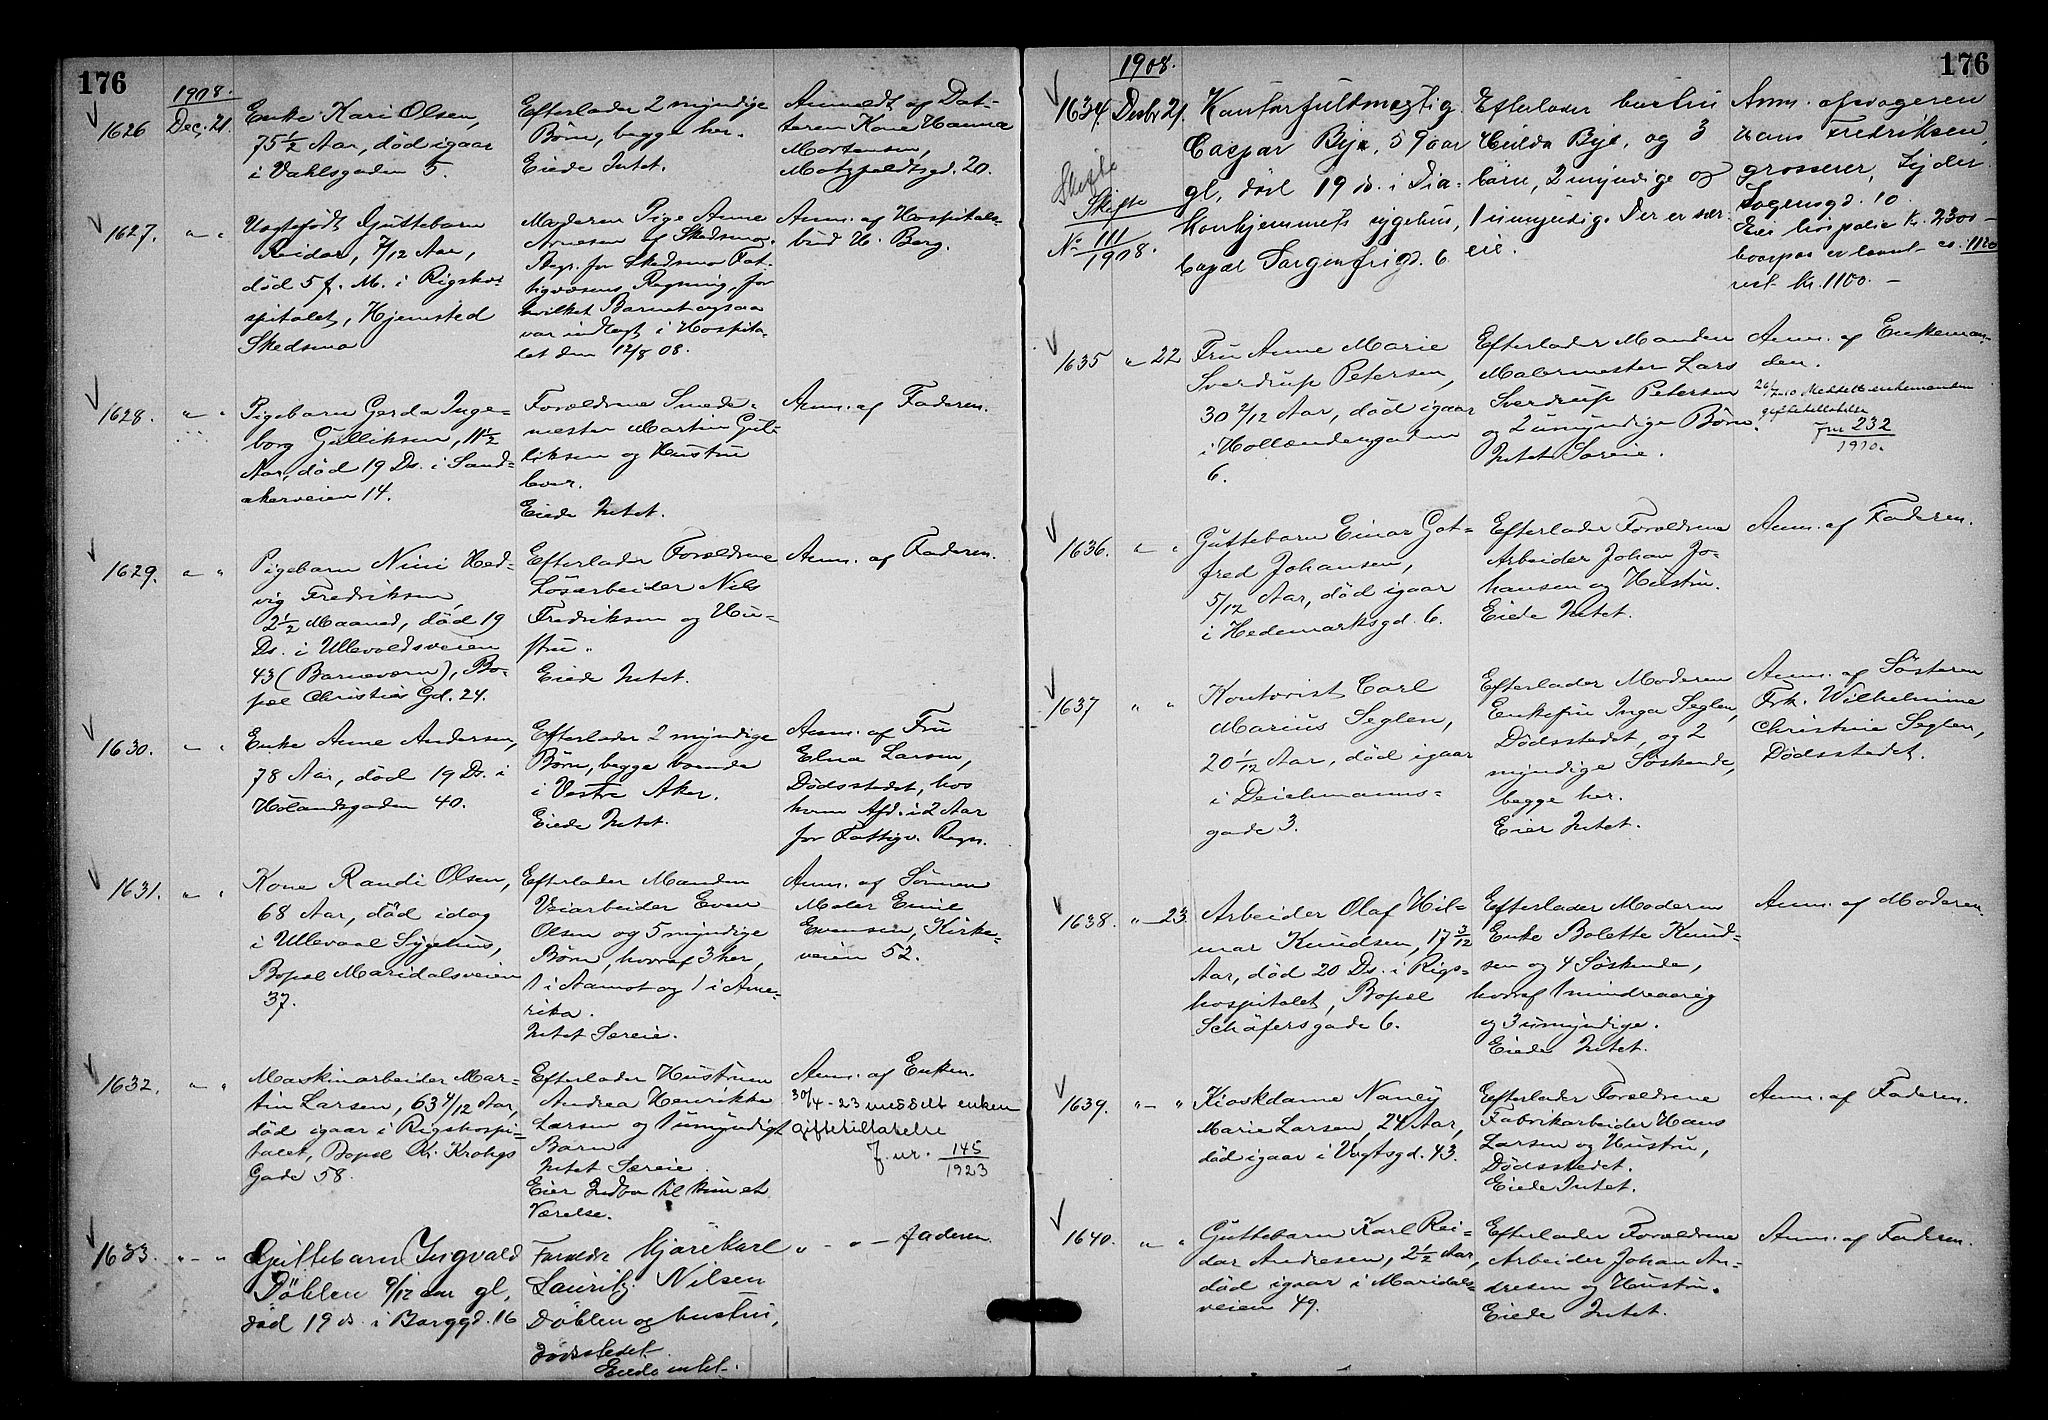 176
1908.
1626
Dec. 21.
Enke Kari Olsen,
75 1/2 Aar, död igaar
i Vahlsgaden 5.
Efterlader 2 myndige
Børn, begge her.
Eiede Intet.
Anmeldt af Dat-
teren Kone Hanna
Mortensen,
Motzfeldtsgd. 20.
1627.
" "
Uegtefødt Guttebarn
Reidar, 7/12 Aar,
död 5 f. M. i Rigsho-
spitalet, Hjemsted
Skedsmo
Moderen Pige Anne
Arnesen af Skedsmo.
Begr. for Skedsmo Fat-
tigvæsens Regning, for
hvilket Barnet ogsaa
var indlagt i Hospita-
let den 12/8 08.
Anm. af Hospitals-
bud H. Berg.
1628.
" "
Pigebarn Gerda Inge-
borg Gulliksen, 11 1/2
Aar, död 19 Ds. i Sand-
akerveien 14.
Forældrene Smede-
mester Martin Gul-
liksen og Hustru
lever.
Eiede Intet.
Anm. af Faderen.
1629.
" "
Pigebarn Nini Hed-
vig Fredriksen,
2 1/2 Maaned, död 19
Ds. i Ullevoldsveien
43 (Barneværn), Bo-
pæl Christies Gd. 24.
Efterlader Forældrene
Løsarbeider Nils
Fredriksen og Hu-
stru.
Eiede Intet.
Anm. af Faderen.
1630.
" "
Enke Anne Andersen,
78 Aar, död 19 Ds. i
Hølandsgaden 40.
Efterlader 2 myndige
Børn, begge boende
i Vestre Aker.
Eiede Intet.
Anm. af Fru
Elna Larsen,
Dödsstedet, hos
hvem Afd. i 2 Aar
for Fattigv. Regn.
1631.
" "
Kone Randi Olsen,
68 Aar, död idag
i Ullevaal Sygehus,
Bopæl Maridalsveien
37.
Efterlader Manden
Veiarbeider Even
Olsen og 5 myndige
Børn, hvoraf 3 her,
1 i Aamot og 1 i Ame-
rika.
Intet Særeie.
Anm. af Sønnen
Maler Emil
Evensen, Kirke-
veien 52.
1632.
" "
Maskinarbeider Mar-
tin Larsen, 63 4/12 Aar,
död igaar i Rigshospi-
talet, Bopæl Kr. Krohgs
Gade 58.
Efterlader Hustruen
Andrea Henrikke
Larsen og 1 umyndigt
Barn
Intet Særeie.
Eier Indbo til kun et
Værelse.
Anm. af Enken.
30/4 - 23 meddelt enken
giftetilladelse
J. nr. 145/1923
1633.
" "
Guttebarn Ingvald
Döblen 9/12 aar gl,
död 19 ds i Borggd. 16
Forældre Kjörekarl
Lauritz Nilsen
Döblen og hustru,
dödsstedet.
Eiede intet.
" - " - faderen
176
1908.
1634.
Desbr 21.
Skifte
Skifte
No 111/1908.
Kontorfuldmægtig
Caspar Bye, 59 aar
gl, död 19 ds. i Dia-
konhjemmets sygehus,
bopæl Sorgenfrigd. 6.
Efterlader hustru
Hulda Bye, og 3
börn, 2 myndige og
1 umyndig. Der er sær-
eie.
Anm. af svogeren
Hans Fredriksen,
grosserer, Eyder
Sagensgd. 10.
Eier livspolice kr. 2300 -
hvorpaa er laant ca. 1120
rest kr. 1100. -
1635
" 22
Fru Anne Marie
Sverdrup Petersen,
30 2/12 Aar, död igaar
i Hollændergaden
6.
Efterlader Manden
Malermester Lars
Sverdrup Petersen
og 2 umyndige Børn.
Intet Særeie.
Anm. af Enkeman-
den.
26/7 10 Meddelt enkemanden
giftetilladelse
Jnr 232/1910.
1636.
" "
Guttebarn Einar Got-
fred Johansen,
5/12 Aar, död igaar
i Hedemarksgd. 6.
Efterlader Forældrene
Arbeider Johan Jo-
hansen og Hustru.
Eiede Intet.
Anm. af Faderen.
1637
" "
Kontorist Carl
Marius Seglen,
20 1/12 Aar, död igaar
i Deichmanns-
gade 3.
Efterlader Moderen
Enkefru Inga Seglen,
Dödsstedet, og 2
myndige Søskende,
begge her.
Eier Intet.
Anm. af Søsteren
Frk. Wilhelmine
Christine Seglen,
Dödsstedet.
1638.
" 23.
Arbeider Olaf Hil-
mar Knudsen, 17 3/12
Aar, död 20 Ds. i Rigs-
hospitalet, Bopæl
Schäfersgade 6.
Efterlader Moderen
Enke Bolette Knud-
sen og 4 Søskende,
hvoraf 1 mindreaarig
og 3 umyndige.
Eiede Intet.
Anm. af Moderen.
1639.
" - "
Kioskdame Nancy
Marie Larsen, 24 Aar,
död igaar i Vogtsgd. 43.
Efterlader Forældrene
Fabrikarbeider Hans
Larsen og Hustru,
Dödsstedet.
Eiede Intet.
Anm. af Faderen.
1640.
" "
Guttebarn Karl Rei-
dar Andresen, 2 1/2 Aar,
död igaar i Maridals-
veien 49.
Efterlader Forældrene
Arbeider Johan An-
dresen og Hustru.
Eiede Intet.
Anm. af Faderen.